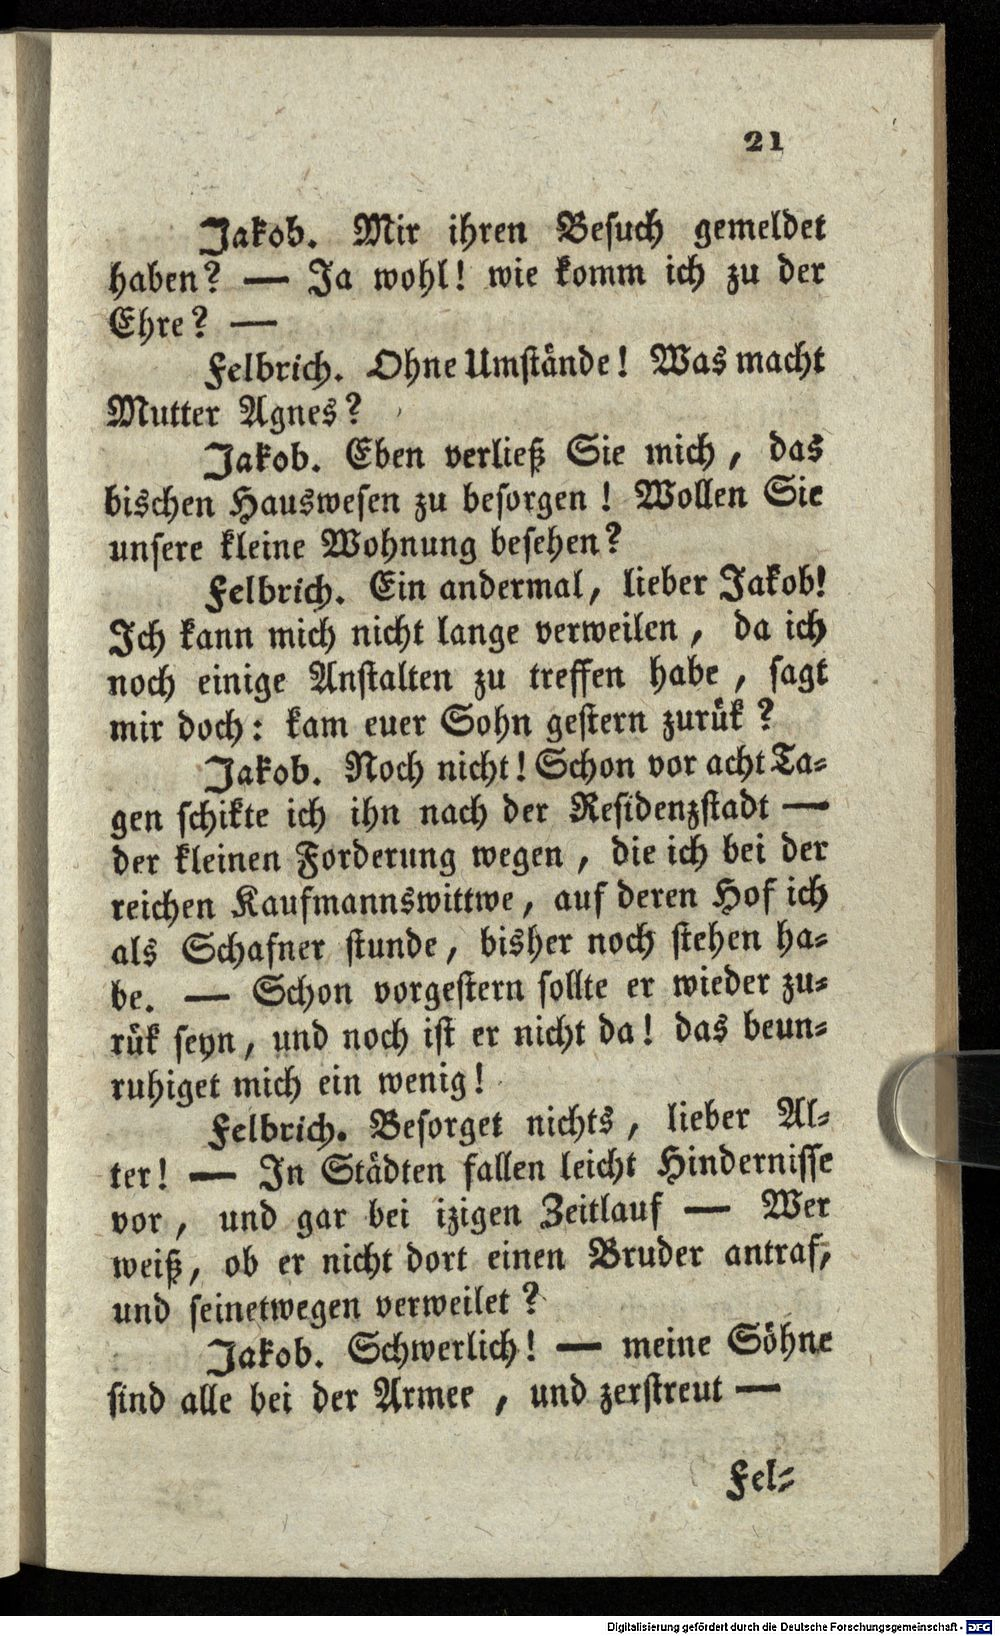 21
Jakob. Mir ihren Besuch gemeldet
haben? — Ja wohl! wie komm ich zu der
Ehre? —
Felbrich. Ohne Umstände! Was macht
Mutter Agnes?
Jakob. Eben verließ Sie mich, das
bischen Hauswesen zu besorgen! Wollen Sie
unsere kleine Wohnung besehen?
Felbrich. Ein andermal, lieber Jakob!
Ich kann mich nicht lange verweilen, da ich
noch einige Anstalten zu treffen habe, sagt
mir doch: kam euer Sohn gestern zurük?
Jakob. Noch nicht! Schon vor acht Ta-
gen schikte ich ihn nach der Residenzstadt —
der kleinen Forderung wegen, die ich bei der
reichen Kaufmannswittwe, auf deren Hof ich
als Schafner stunde, bisher noch stehen ha-
be. — Schon vorgestern sollte er wieder zu-
rük seyn, und noch ist er nicht da! das beun-
ruhiget mich ein wenig!
Felbrich. Besorget nichts, lieber Al-
ter! — In Städten fallen leicht Hindernisse
vor, und gar bei izigen Zeitlauf — Wer
weiß, ob er nicht dort einen Bruder antraf,
und seinetwegen verweilet?
Jakob. Schwerlich! — meine Söhne
sind alle bei der Armee, und zerstreut —
Fel-
Digitalisierung gefördert durch die Deutsche Forschungsgemeinschaft - DFG